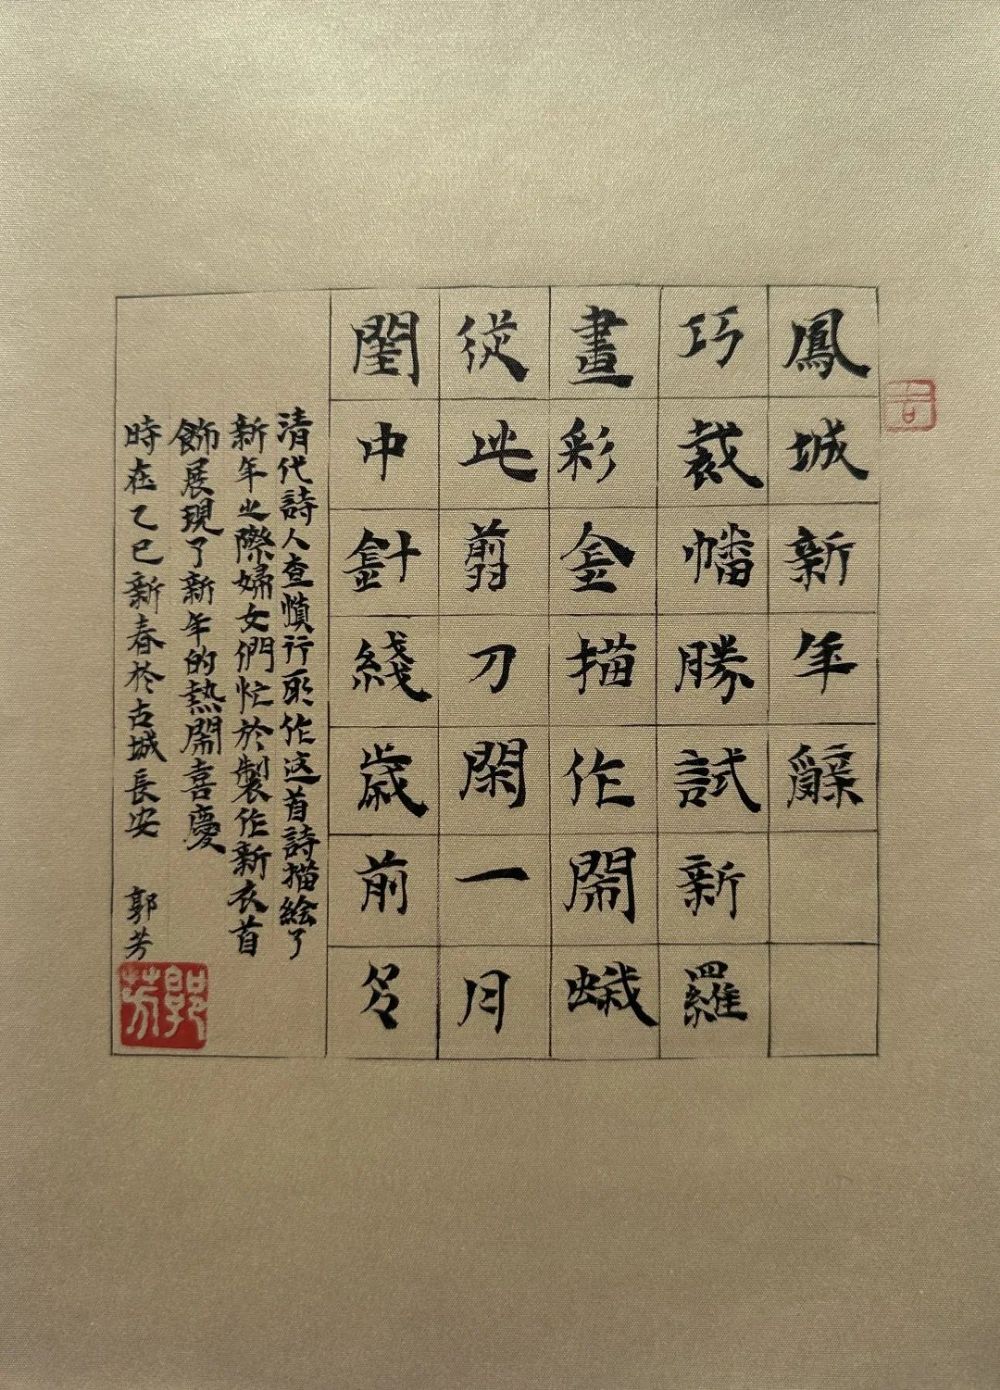 鳳城新年辭
巧裁幡勝試新羅
畫彩金描作鬧蛾
從此剪刀閑一月
閨中針綫歲前多
清代詩人查慎行所作这首詩描絵了
新年之際婦女們忙於製作新衣首
飾展現了新年的熱鬧喜慶
時在乙巳新春於古城長安 郭芳
郭芳